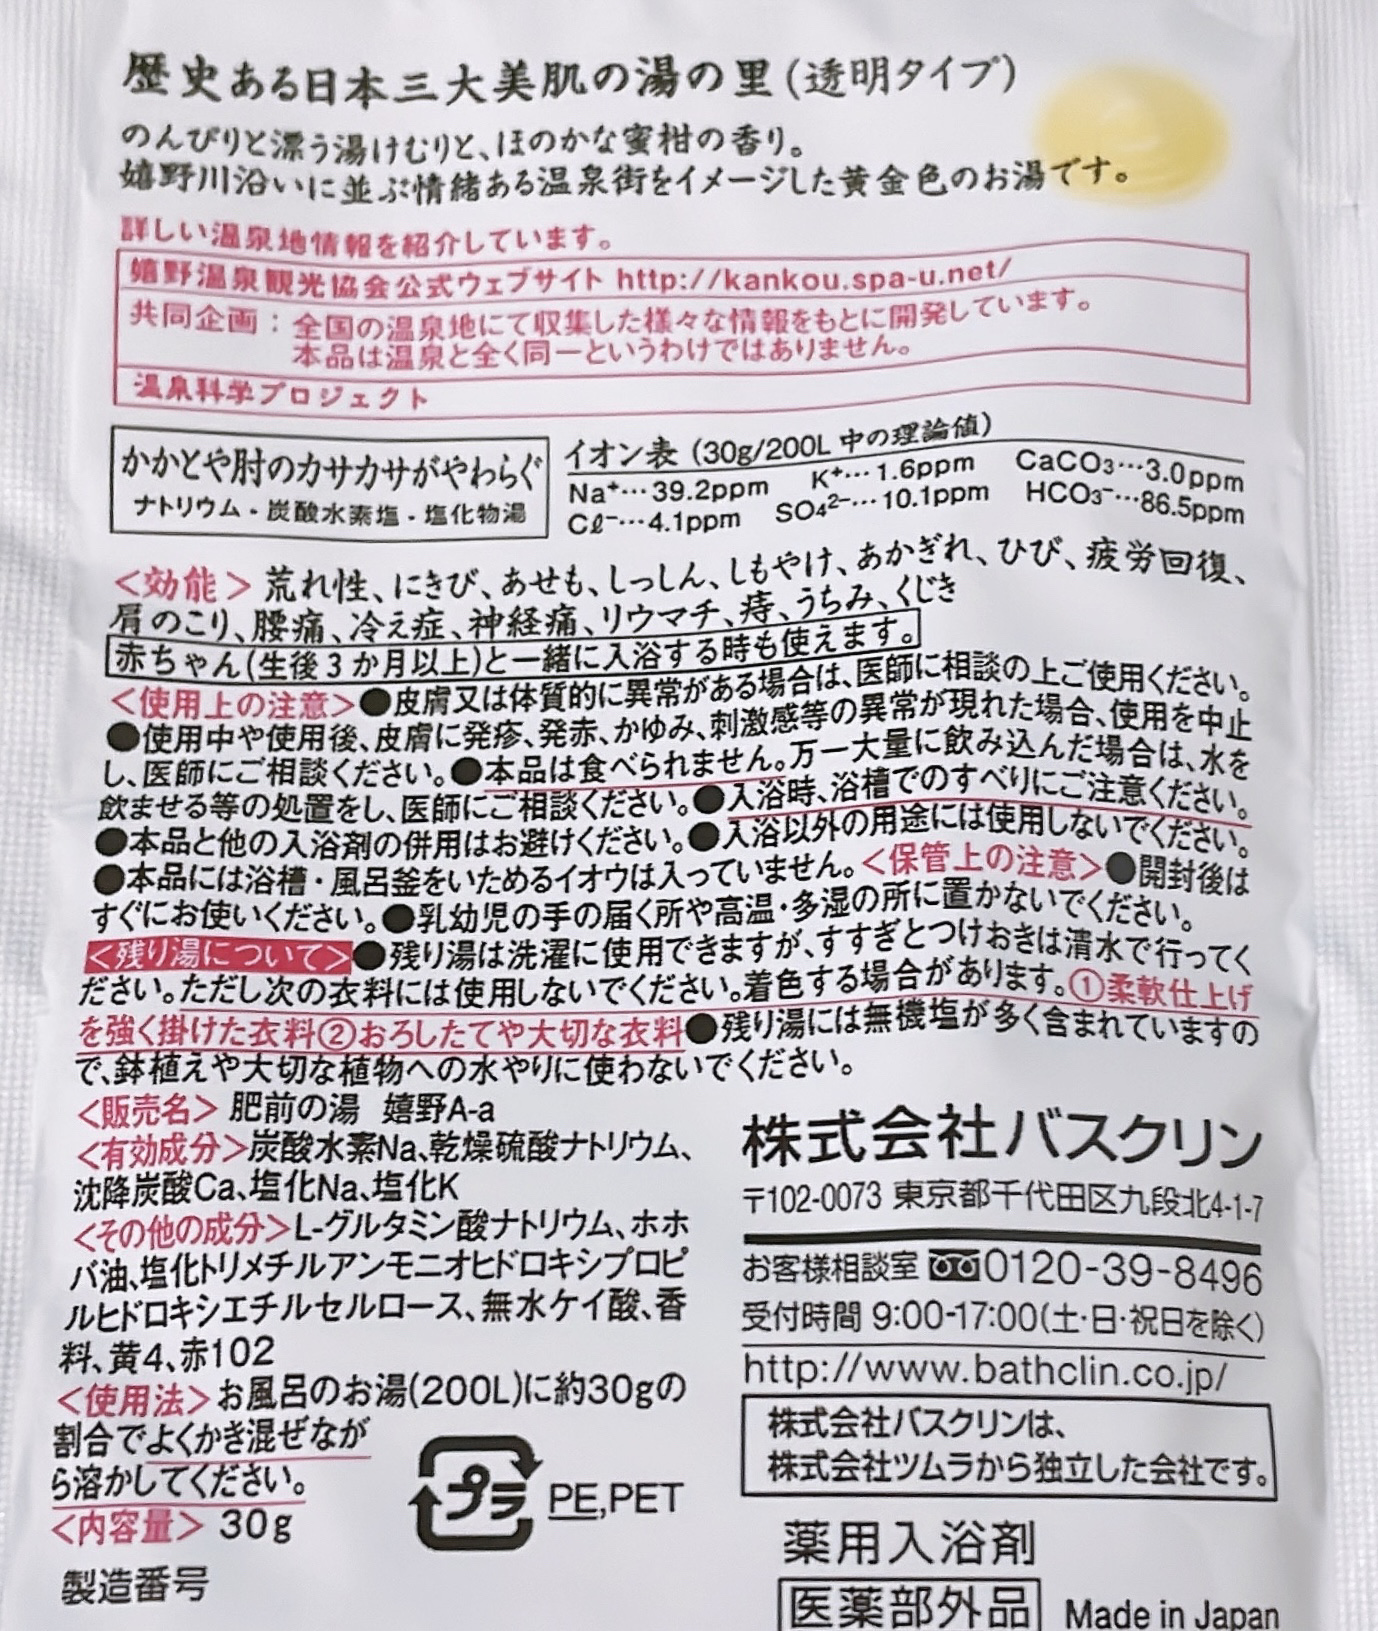 歴史ある日本三大美肌の湯の里(透明タイプ)
のんびりと漂う湯けむりと、ほのかな蜜柑の香り。
嬉野川沿いに並ぶ情緒ある温泉街をイメージした黄金色のお湯です。
詳しい温泉地情報を紹介しています。
嬉野温泉観光協会公式ウェブサイト http://kankou.spa-u.net/
共同企画：全国の温泉地にて収集した様々な情報をもとに開発しています。
本品は温泉と全く同一というわけではありません。
温泉科学プロジェクト
かかとや肘のカサカサがやわらぐ
ナトリウム・炭酸水素塩・塩化物湯
イオン表 (30g/200L 中の理論値)
Na⁺…39.2ppm K⁺…1.6ppm CaCO₃…3.0ppm
Cℓ⁻…4.1ppm SO₄²⁻…10.1ppm HCO₃⁻…86.5ppm
<効能> 荒れ性、にきび、あせも、しっしん、しもやけ、あかぎれ、ひび、疲労回復、
肩のこり、腰痛、冷え症、神経痛、リウマチ、痔、うちみ、くじき
赤ちゃん(生後3か月以上)と一緒に入浴する時も使えます。
<使用上の注意>●皮膚又は体質的に異常がある場合は、医師に相談の上ご使用ください。
●使用中や使用後、皮膚に発疹、発赤、かゆみ、刺激感等の異常が現れた場合、使用を中止
し、医師にご相談ください。●本品は食べられません。万一大量に飲み込んだ場合は、水を
飲ませる等の処置をし、医師にご相談ください。●入浴時、浴槽でのすべりにご注意ください。
●本品と他の入浴剤の併用はお避けください。●入浴以外の用途には使用しないでください。
●本品には浴槽・風呂釜をいためるイオウは入っていません。<保管上の注意>●開封後は
すぐにお使いください。●乳幼児の手の届く所や高温・多湿の所に置かないでください。
<残り湯について>●残り湯は洗濯に使用できますが、すすぎとつけおきは清水で行ってく
ださい。ただし次の衣料には使用しないでください。着色する場合があります。①柔軟仕上げ
を強く掛けた衣料②おろしたてや大切な衣料●残り湯には無機塩が多く含まれていますの
で、鉢植えや大切な植物への水やりに使わないでください。
<販売名> 肥前の湯 嬉野A-a
<有効成分>炭酸水素Na、乾燥硫酸ナトリウム、
沈降炭酸Ca、塩化Na、塩化K
<その他の成分>L-グルタミン酸ナトリウム、ホホ
バ油、塩化トリメチルアンモニオヒドロキシプロピ
ルヒドロキシエチルセルロース、無水ケイ酸、香
料、黄4、赤102
<使用法>お風呂のお湯(200L)に約30gの
割合でよくかき混ぜなが
ら溶かしてください。
<内容量> 30g
製造番号
プラ PE,PET
株式会社バスクリン
〒102-0073 東京都千代田区九段北4-1-7
お客様相談室 0120-39-8496
受付時間 9:00-17:00(土・日・祝日を除く)
http://www.bathclin.co.jp/
株式会社バスクリンは、
株式会社ツムラから独立した会社です。
薬用入浴剤
医薬部外品 Made in Japan